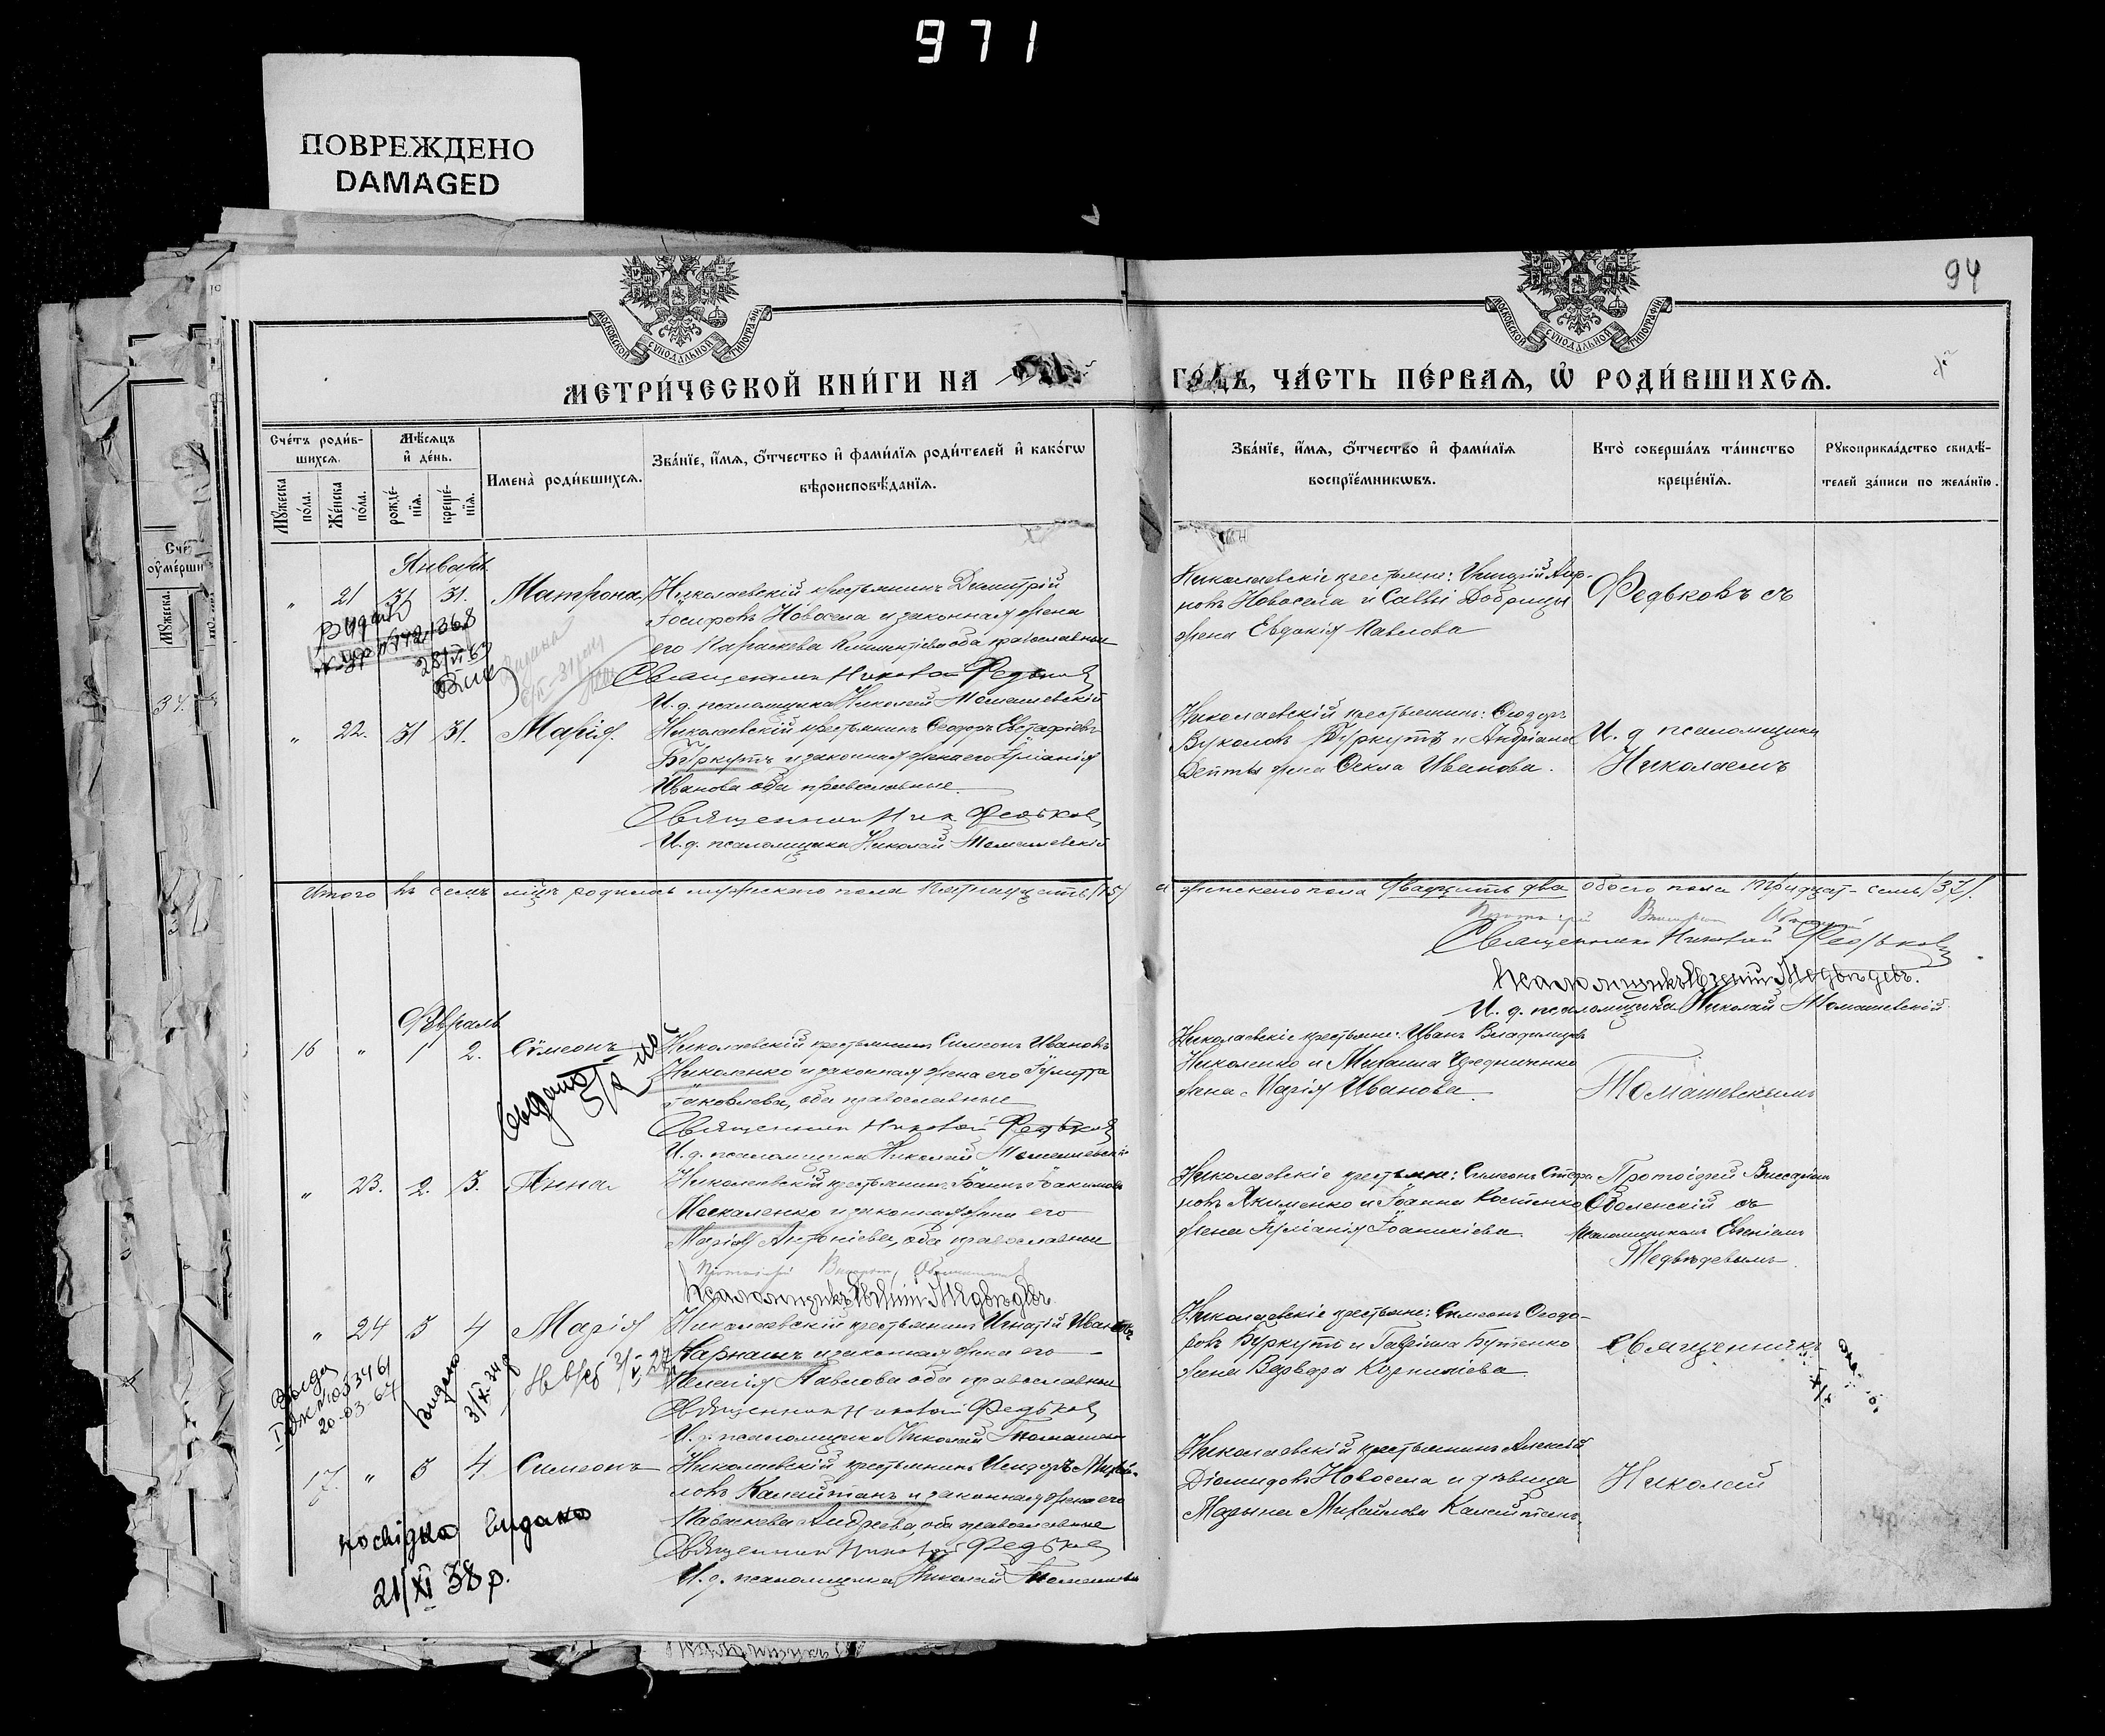 971
ПОВРЕЖДЕНО
DAMAGED
94
МОСКОВСКОЙ СѴНОДАЛЬНОЙ ТИПОГРАФІИ
МОСКОВСКОЙ СѴНОДАЛЬНОЙ ТИПОГРАФІИ
МЕТРИ́ЧЕСКОЙ КНИ́ГИ НА
ГО́ДЪ, ЧА́СТЬ ПЕ́РВАЯ, Ѿ РОДИ́ВШИХСЯ.
Сче́тъ роди́в-
шихся.
Мꙋ́жеска по́ла.
Же́нска по́ла.
Мѣ́сяцъ и҆ де́нь.
рожде́-нїя.
креще́-нїя.
И҆мена̀ роди́вшихся.
Зва́нїе, и҆́мя, ѻ҆́тчество и҆ фами́лїя роди́телей и҆ како́гѡ
вѣроисповѣ́данїя.
Зва́нїе, и҆́мя, ѻ҆́тчество и҆ фами́лїя
воспрїе́мникѡвъ.
Кто̀ соверша́лъ та́инство
креще́нїя.
Рꙋкоприкла́дство свидѣ́-
телей за́писи по жела́нїю.
Январь
" 21 31 31. Матрона
Николаевскій крестьянинъ Димитрій
Іосифовъ Новосела и законная жена
его Параскева Климентіева оба православные
Священникъ Николай Федьковъ
И. д. псаломщика Николай Томашевскій
Николаевскіе крестьяне:
новъ Новосела и Саввы Добрицы
жена Евдокія Павлова
Федьковъ съ
28/VI 63
" 22. 31 31. Марія.
Николаевскій крестьянинъ Ѳеодоръ Евстафіевъ
Буркутъ и законная жена его Іуліанія
Иванова оба православные
Священникъ Ник Федьковъ
И. д. псаломщика Николай Томашевскій
Николаевскій крестьянинъ: Ѳеодоръ
Вуколовъ Буркутъ и Андріана
жена Ѳекла Иванова.
И. д псаломщика
Николаемъ
Итого въ семъ родилось мужескаго пола пятнадцать /15/
а женскаго пола двадцать два обоего пола тридцат- семь /37/.
Священникъ Николай Федьковъ
Псаломщикъ Евгеній Медвѣдевъ.
И. д. псаломщика Николай Томашевскій
Февраль
16 " 1 2. Сѵмеонъ
Николаевскій крестьянинъ Симеонъ Ивановъ
Николенко и законная жена его Іулитта
Іаковлева, оба православные
Священникъ Николай Федьковъ
И. д. псаломщика Николай Томашевскій
Николаевскіе крестьяне: Иванъ Владимировъ
Николенко и Михаила Чередниченко
жена Марія Иванова.
Томашевскимъ
" 23. 2. 3. Анна
Николаевскій крестьянинъ Іоаннъ Іоакимовъ
Москаленко и законная жена его
Марія Антоніева, оба православные
Псаломщикъ Евгеній Медвѣдевъ
Николаевскіе крестьяне: Симеонъ Стефа
новъ Якименко и Іоанна Костенко
жена Іуліанія Іоаникіева
Протоіерей Виссаріонъ
Оболенскій съ
псаломщикомъ Евгеніемъ
Медвѣдевымъ.
" 24 3 4 Марія
Николаевскій крестьянинъ Игнатій Ивановъ
Карнаухъ и законная жена его
Ксенія Павлова оба православные
Священникъ Николай Федьковъ
И. д. псаломщика Николай Томашевскій
Николаевскіе крестьяне: Симеонъ Ѳеодо-
ровъ Буркутъ и Гавріила Бутенко
жена Варвара Корниліева
Священникъ
20-03-64
видано
17. " 3 4. Симеонъ
Николаевскій крестьянинъ Исидоръ Михай-
ловъ Калейтанъ и законная жена его
Параскева Андреева, оба православные
Священникъ Николай Федьковъ
И. д. псаломщика Николай Томашевскій
Николаевскій крестьянинъ Алексѣй
Діомидовъ Новосела и дѣвица
Марина Михайлова Калейтанъ.
Николай
посвідка видана
21/XI 38 р.